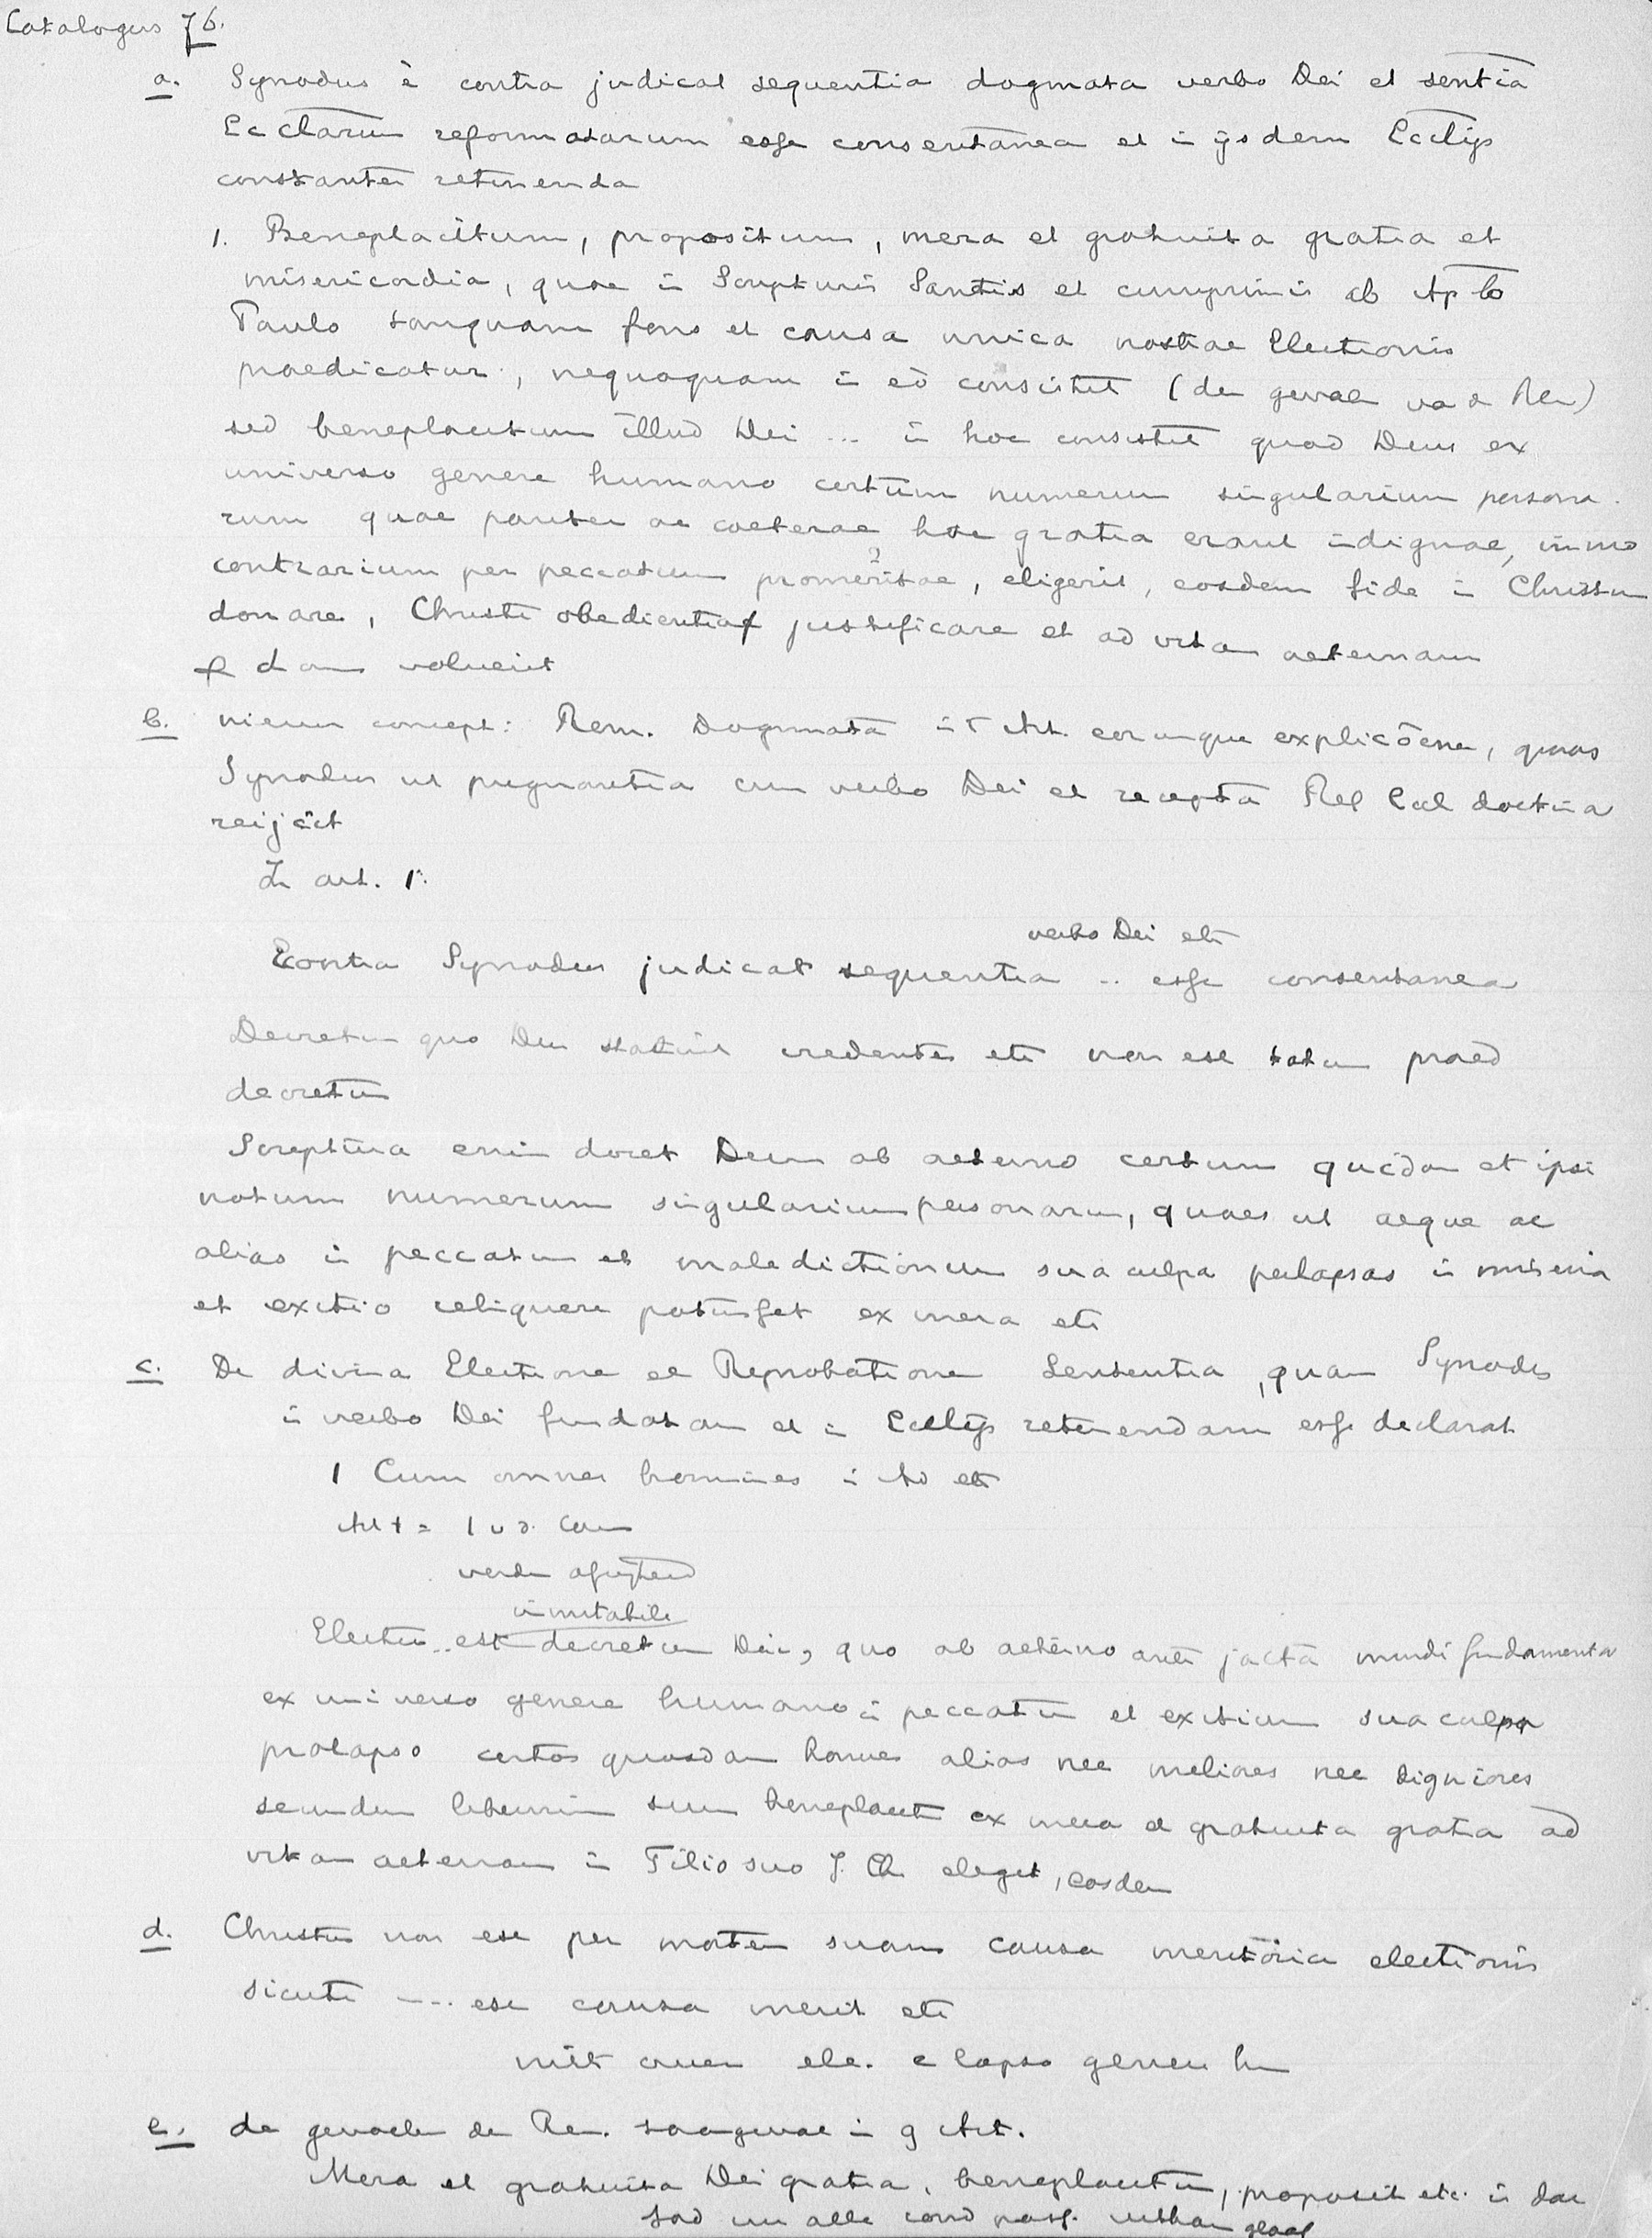 Catalogus 76.
a. Synodus è contra judicat sequentia dogmata verbo Dei et sentīa
Ecclarum reformatarum esse consentanea et in ijsdem Ecclijs
constanter retinenda
1. Beneplacitum, propositum, mera et gratuita gratia et
misericordia, quae in Scripturis Sanctis et cumprimis ab Aplo
Paulo tanquam fons et causa unica nostrae Electionis
praedicatur, nequaquam in eo consistit (de gevoelen van de Rem)
sed beneplacitum illud Dei ... in hoc consistit quod Deus ex
universo genere humano certum numerum singularium persona-
rum quae pariter ac caeterae hac gratia erant indignae, immo
contrarium per peccatum promeritae, eligerit, eosdem fide in Christum
donare, Christi obedientia justificare et ad vitam aeternam
dam voluerit
b. nieuw concept: Rem. Dogmata in 1 Art. eorumque explicōene, quas
Synodus ut pugnantia cum verbo Dei et recepta Ref Eccl doctrina
reijcit
In art. 1.
verbo Dei etc
Econtra Synodus judicat sequentia .. esse consentanea
Decretum quo Deus statuit credentes etc non est totum praed
decretum
Scriptura enim docet Deum ab aeterno certum quēdam et ipsi
notum numerum singularium personarum, quas ut aeque ac
alias in peccatum et maledictionem sua culpa prolapsas in miseria
et exitio relinquere potuisset ex mera etc
c. De divina Electione et Reprobatione Sententia, quam Synodus
in verbo Dei fundatam et in Ecclijs retinendam esse declarat
1 Cum omnes homines in Ad etc
Art 1 = 1 v. d. Can
verder afwijkend
immutabile
Electio .. est decretum Dei, quo ab aeterno ante jacta mundi fundamenta
ex universo genere humano in peccatum et exitium sua culpa
prolapso certos quosdam homines alias nec meliores nec digniores
secundum liberrimum suum beneplacitum ex mera et gratuita gratia ad
vitam aeternam in Filio suo J. Ch elegit, eosdem
d. Christus non est per mortem suam causa meritoria electionis
sicuti ---. est causa merit etc
niet over ele. e lapso genere hu
e. de gevoelen de Re. saangevat in 9 Art.
Mera et gratuita Dei gratia, beneplacitum, proposit etc. in dat
God uit alle cond geloof